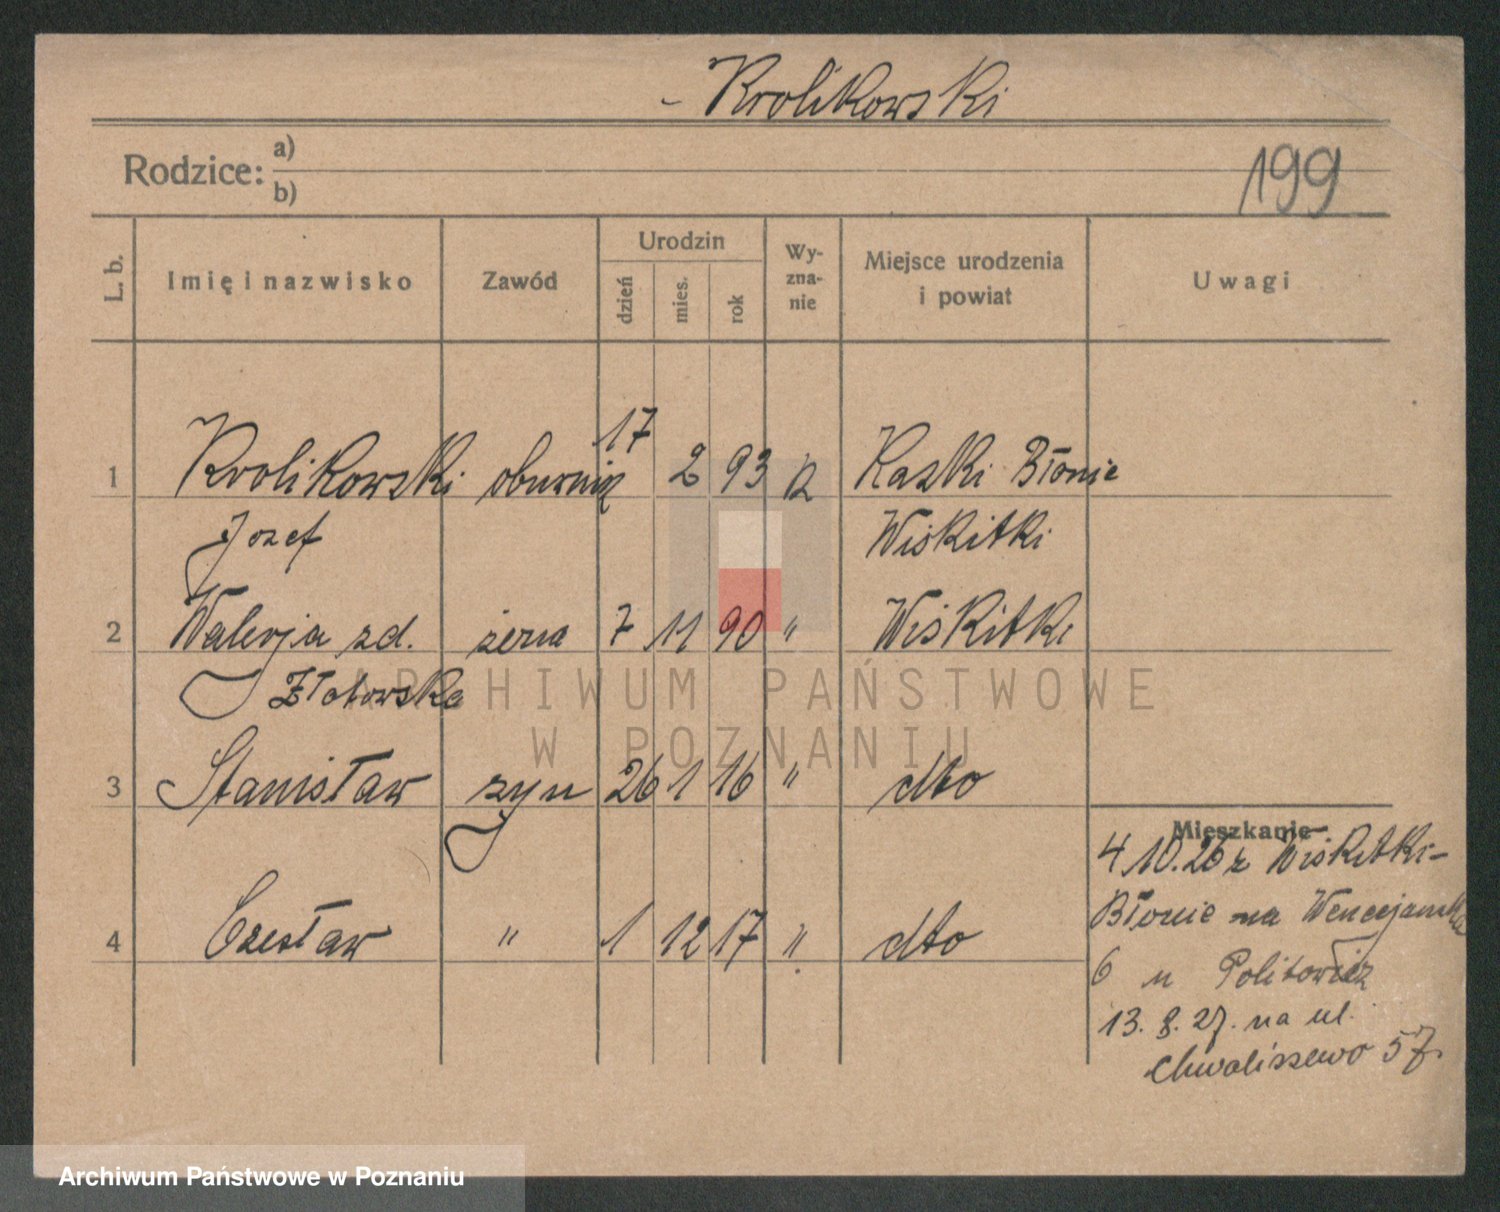 - Krolikowski
Rodzice: a)
b)
199
L. b. Imię i nazwisko Zawód Urodzin dzień mies. rok Wy-zna-nie Miejsce urodzenia i powiat Uwagi
17
1 Krolikowski 2 93 Kaski Błonie
Jozef Wiskitki
2 Walerja zd. żona 7 11 90 " Wiskitki
Złotowska
ARCHIWUM PAŃSTWOWE
W POZNANIU
3 Stanisław syn 26 1 16 " dto
Mieszkanie
4 10.26 z Wiskitki-
4 Czesław " 1 12 17 " dto
Błonie na Wenecjańska
6 u Politowicz
13. 8. 27. na ul.
Chwaliszewo 57.
Archiwum Państwowe w Poznaniu